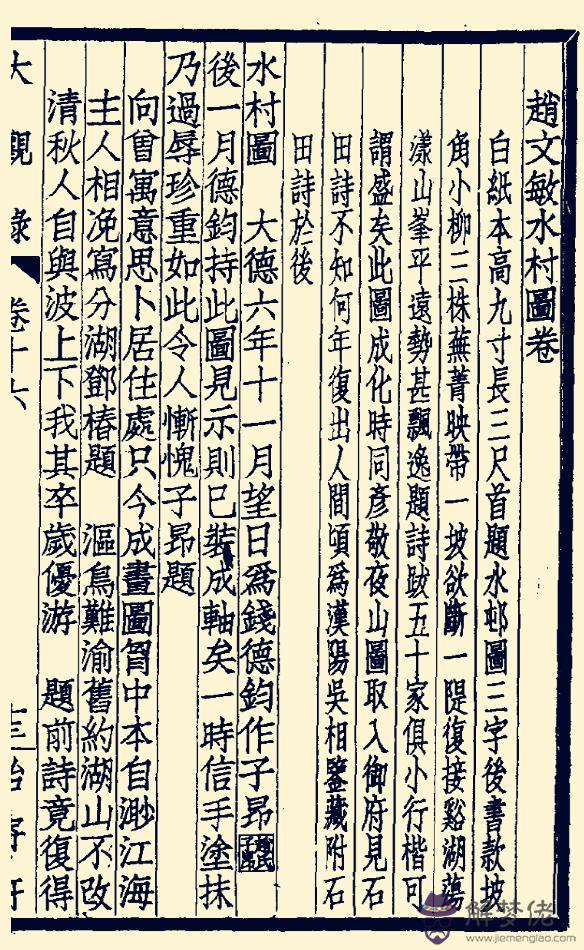 趙文敏水村圖卷
白紙本高九寸長三尺首題水邨圖三字後書款坡
角小柳三株蕪菁映帶一坡欲斷一隄復接谿湖蕩
漾山峯平遠勢甚飄逸題詩跋五十家俱小行楷可
謂盛矣此圖成化時同彥敬夜山圖取入御府見石
田詩不知何年復出人間頃爲漢陽吳相鑒藏附石
田詩於後
水村圖 大德六年十一月望日爲錢德鈞作子昂
後一月德鈞持此圖見示則已裝成軸矣一時信手塗抹
乃過辱珍重如此令人慚愧子昂題
向曾寓意思卜居住處只今成畫圖胷中本自渺江海
主人相免寫分湖鄧椿題 漚鳥難渝舊約湖山不改
清秋人自與波上下我其卒歲優游 題前詩竟復得
大觀錄 卷十六
解梦佬
www.jiemenglao.com